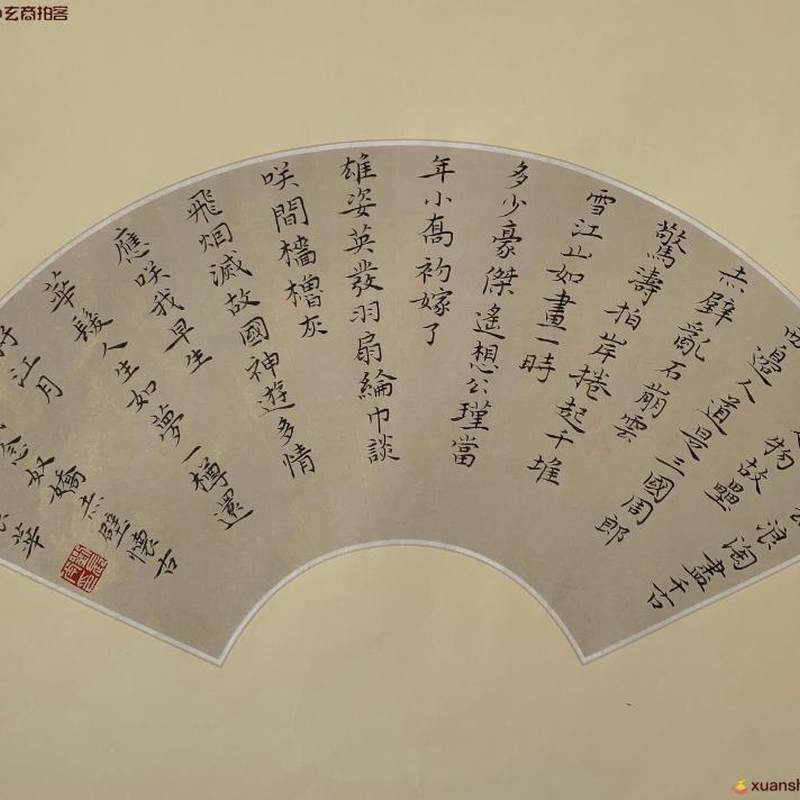 玄商拍客
浪淘盡千古
物故壘
西邊人道是三國周郎
赤壁亂石崩雲
驚濤拍岸捲起千堆
雪江山如畫一時
多少豪傑遙想公瑾當
年小喬初嫁了
雄姿英發羽扇綸巾談
咲間檣櫓灰
飛烟滅故國神遊多情
應咲我早生
華髮人生如夢一樽還
酹江月
念奴嬌赤壁懷古
華
xuansh